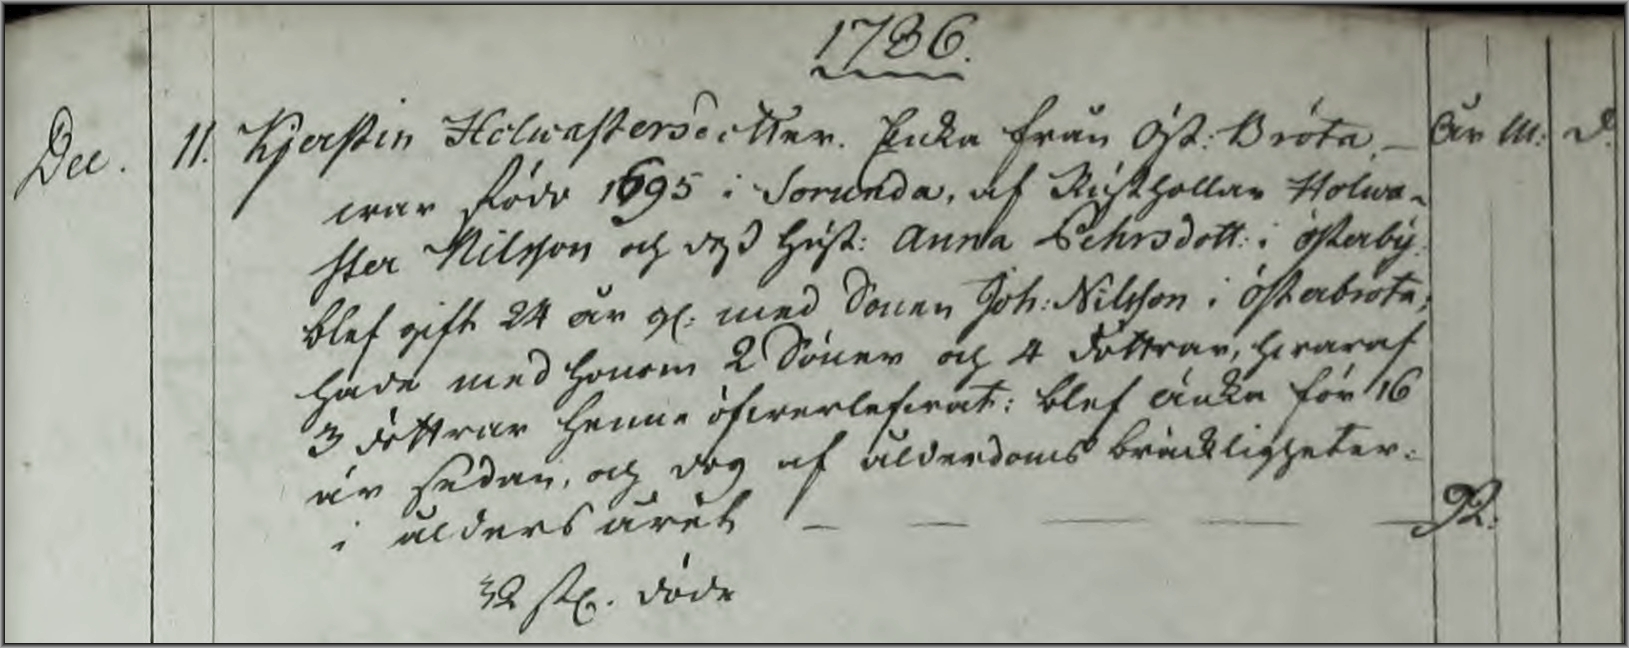 1786.
Dec. 11. Kjerstin Holwastersdotter. Enka från Öst: Bröta, — År M: D.
war född 1695 i Sorunda, af Rusthollar Holwa-
ster Nilsson och dess Hust: Anna Pehrsdott: i Österby:
blef gift 24 år gl: med Sonen Joh: Nilsson i Österbröta;
hade med honom 2 Söner och 4 döttrar, hwaraf
3 döttrar henne öfwerlefwat: blef änka för 16
år sedan, och dog af ålderdoms bräckligheter:
i ålders året — — — — — 92.
32 st. döde